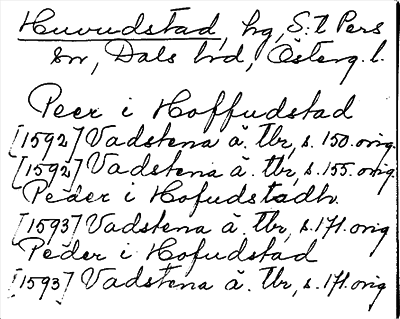 Huvudstad, hg, S:t Pers
sn, Dals hd, Österg. l.
Peer i Hoffudstad
[1592] Vadstena ä. Tbr, s. 150. orig.
[1592] Vadstena ä. Tbr, s. 155. orig
Peder i Hofudstadh
[1593] Vadstena ä. Tbr, s. 171. orig
Peder i Hofudstad
[1593] Vadstena ä. Tbr, s. 171. orig